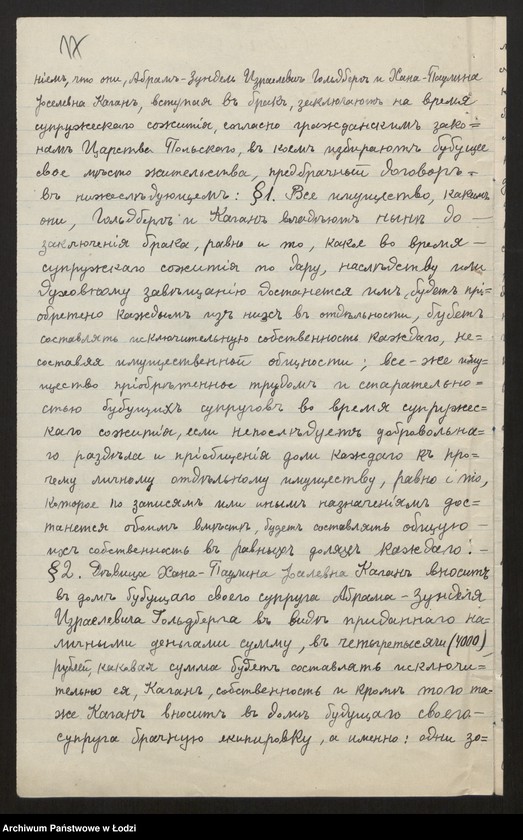 ніемъ, что они, Абрамъ-Зундель Израелевичъ Гольдбергъ и Хана-Паулина
Іоселевна Каганъ, вступая въ бракъ, заключаютъ на время
супружескаго сожитія, согласно гражданскимъ зако=
намъ Царства Польскаго, въ коемъ избираютъ будущее
свое мѣсто жительства, предбрачный договоръ =
въ нижеслѣдующемъ: § 1. Все имущество, какимъ
они, Гольдбергъ и Каганъ владѣютъ нынѣ до —
заключенія брака, равно и то, какое во время —
супружскаго сожитія по дару, наслѣдству или
духовному завѣщанію достанется имъ, будетъ прі=
обретено каждымъ изъ нихъ въ отдѣльности, будетъ
составлять исключительную собственность каждаго, не=
составляя имущественной общности; все-же иму=
щество пріобрѣтенное трудомъ и старательно=
стью будущихъ супруговъ во время супружес=
каго сожитія, если непослѣдуетъ добровольна=
го раздѣла и пріобщенія доли каждаго къ про=
чему личному отдѣльному имуществу, равно и то,
которое по записямъ или инымъ назначеніямъ дос=
танется обоимъ вмѣстѣ, будетъ составлять общую —
ихъ собственность въ равныхъ доляхъ каждаго. —
§ 2. Дѣвица Хана-Паулина Іоселевна Каганъ вноситъ
въ домъ будущаго своего супруга Абрама-Зунделя
Израелевича Гольдберга въ видѣ приданнаго на=
личными деньгами сумму, въ четыретысячи (4000)
рублей, каковая сумма будетъ составлять исключи=
тельно ея, Каганъ, собственность и кромѣ того та=
же Каганъ вноситъ въ домъ будущаго своего —
супруга брачную екипировку, а именно: одни зо=
Archiwum Państwowe w Łodzi